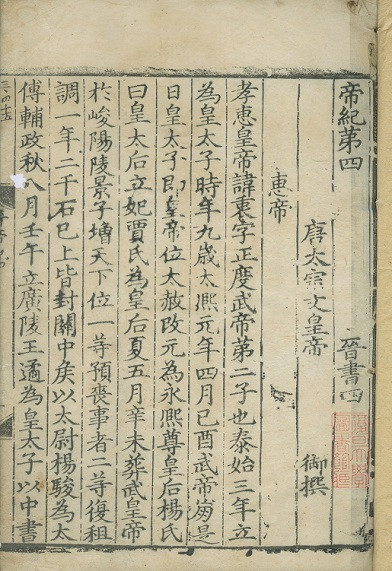 帝紀第四 晉書四
唐太宗文皇帝 御撰
惠帝
孝惠皇帝諱衷字正度武帝第二子也泰始三年立
為皇太子時年九歳太熙元年四月己酉武帝崩是
日皇太子即皇帝位大赦改元為永熙尊皇后楊氏
曰皇太后立妃賈氏為皇后夏五月辛未葬武皇帝
於峻陽陵景子增天下位一等預喪事者二等復租
調一年二千石已上皆封關中矦以太尉楊駿為太
傅輔政秋八月壬午立廣陵王遹為皇太子以中書